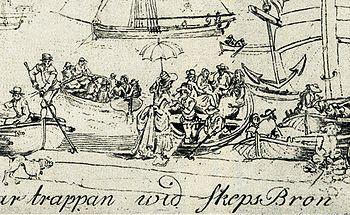 ur trappan wid SkepsBron